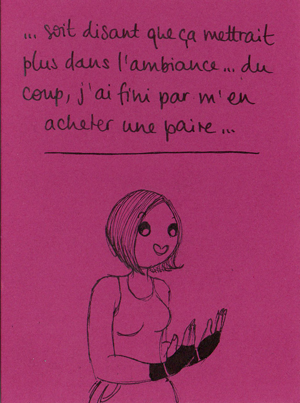 ... soit disant que ça mettrait
plus dans l'ambiance... du
coup, j'ai fini par m'en
acheter une paire...